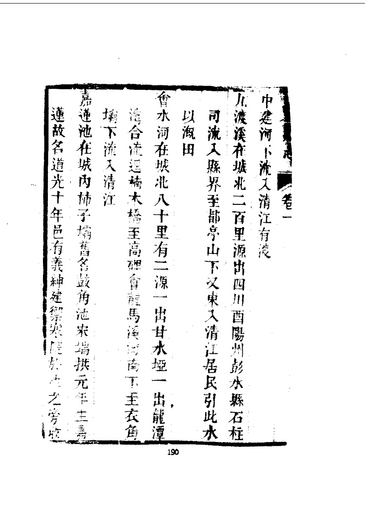 縣志
卷一
中建河下流入清江有渡
九渡溪在城北二百里源出四川酉陽州彭水縣石柱
司流入縣界至都亭山下又東入清江居民引此水
以溉田
會水河在城北八十里有二源一出甘水埡一出龍潭
合流逕
木橋至高
會龍馬溪
下至衣角
壩下流入清江
嘉蓮池在城內柿子壩舊名鼓角池宋端拱元年生嘉
蓮故名道光十年邑有義紳建
之旁
190